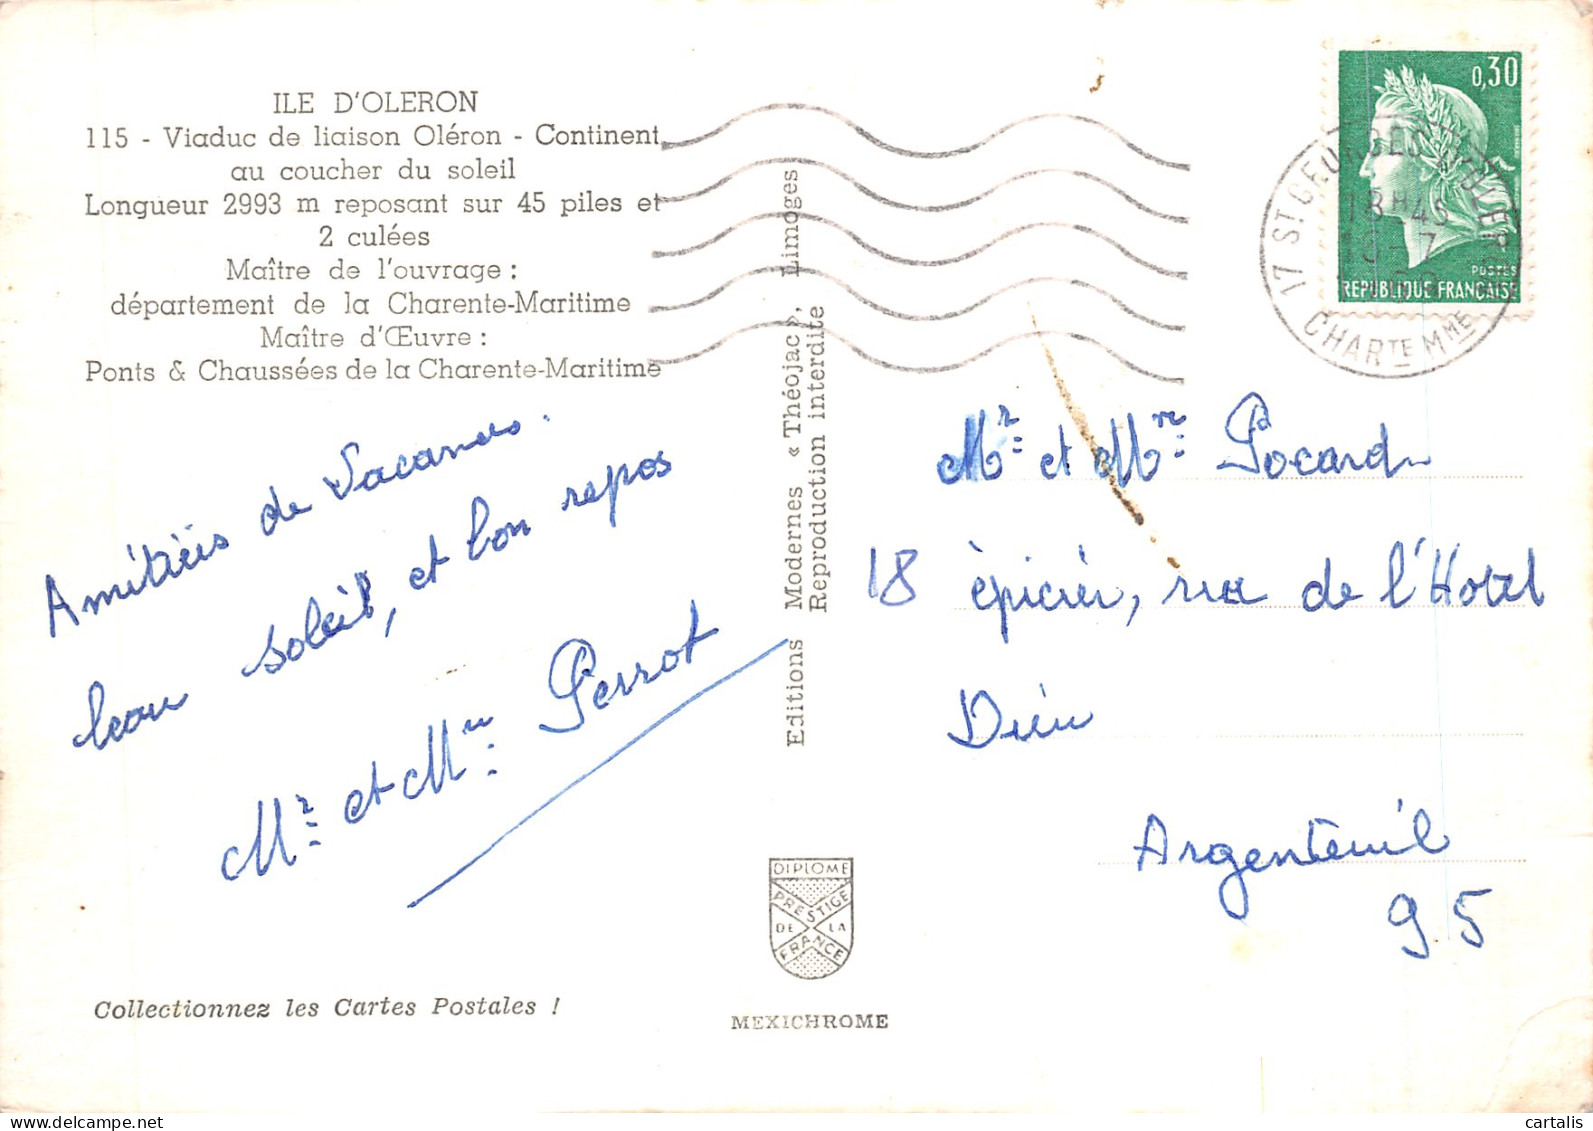 ILE D'OLERON
115 - Viaduc de liaison Oléron - Continent
au coucher du soleil
Longueur 2993 m reposant sur 45 piles et
2 culées
Maître de l'ouvrage :
département de la Charente-Maritime
Maître d'Œuvre :
Ponts & Chaussées de la Charente-Maritime
Amitiés de Vacances.
beau soleil, et bon repos
Mr et Mme Perrot
Collectionnez les Cartes Postales !
Editions Modernes « Théojac », Limoges
Reproduction interdite
DIPLOME
PRESTIGE
DE LA
FRANCE
MEXICHROME
0,30
POSTES
REPUBLIQUE FRANÇAISE
17 ST GEORGES D'OLERON
18H45
CHARTE MME
Mr et Mme Pocard
18 épicier, rue de l'Hotel
Dieu
Argenteuil
95
cartalis